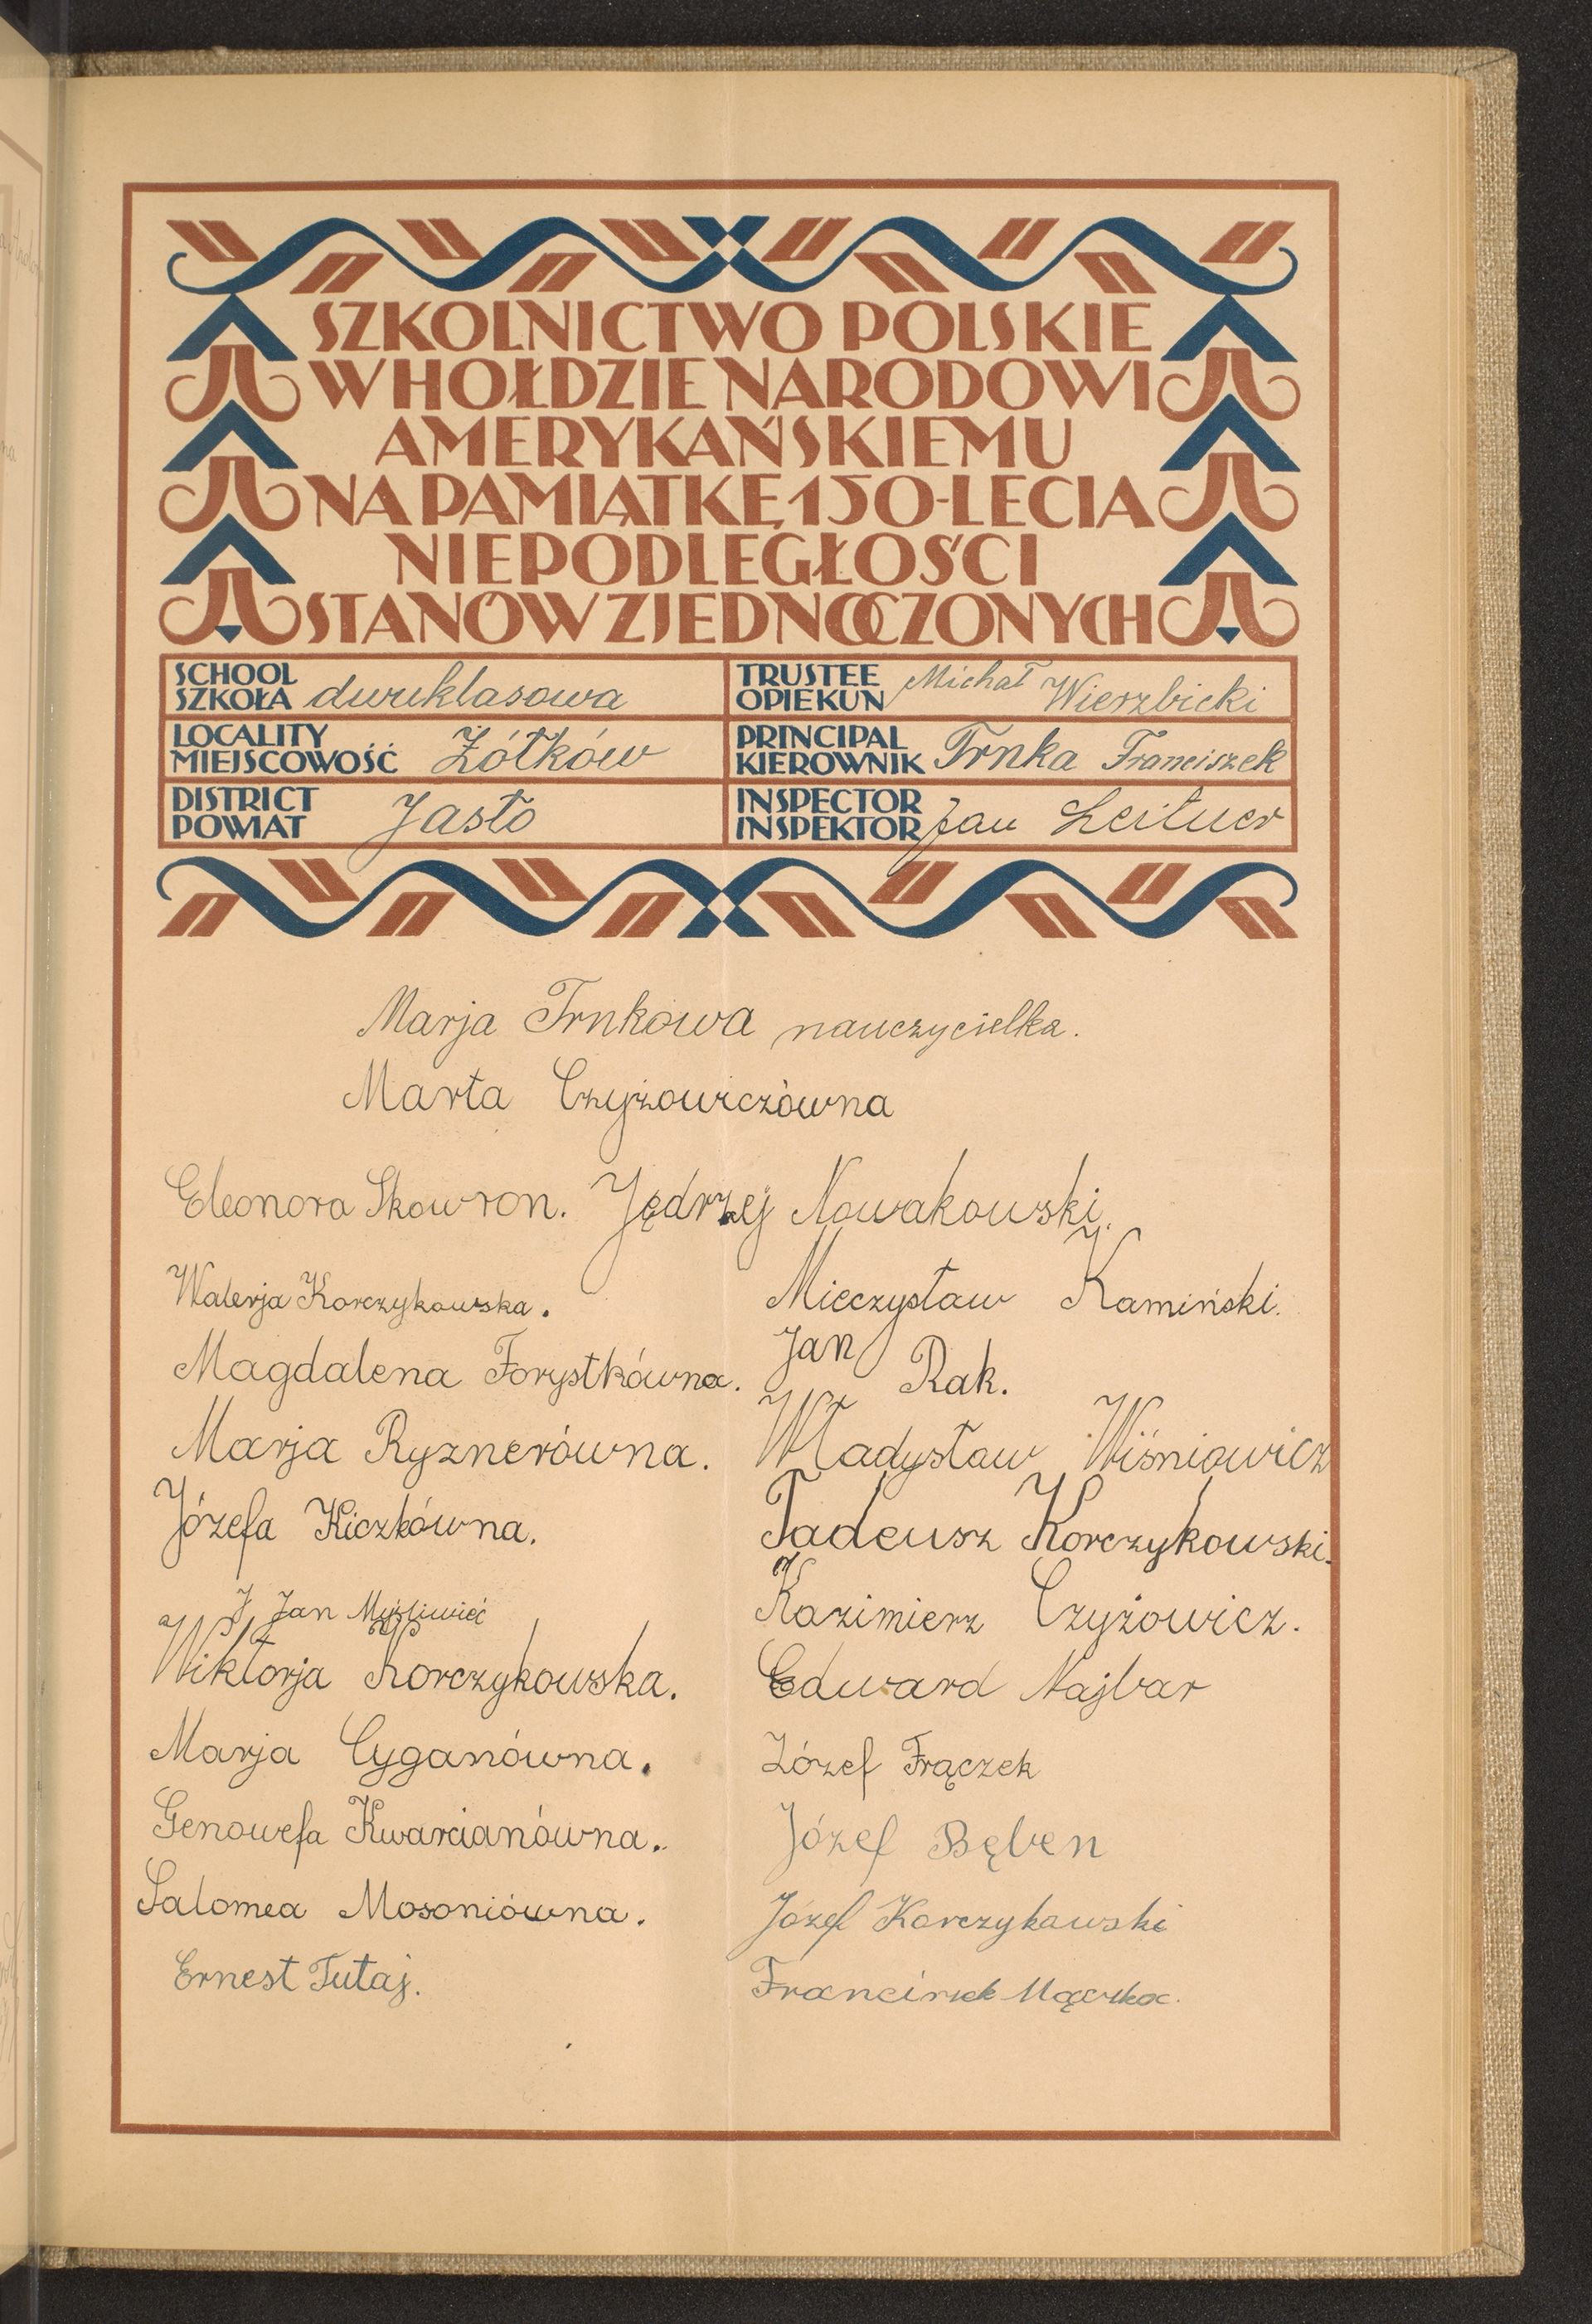 SZKOLNICTWO POLSKIE
W HOŁDZIE NARODOWI
AMERYKAŃSKIEMU
NA PAMIĄTKĘ 150-LECIA
NIEPODLEGŁOŚCI
STANÓW ZJEDNOCZONYCH
SCHOOL
SZKOŁA dwuklasowa
TRUSTEE
OPIEKUN Michał Wierzbicki
LOCALITY
MIEJSCOWOŚĆ Żółków
PRINCIPAL
KIEROWNIK Trnka Franciszek
DISTRICT
POWIAT Jasło
INSPECTOR
INSPEKTOR Jan Leitner
Marja Trnkowa nauczycielka.
Marta Czyżowiczówna
Eleonora Skowron. Jędrzej Nowakowski.
Walerja Korczykowska.
Magdalena Forystkówna.
Marja Ryznerówna.
Józefa Kiczkówna.
J Jan Myśliwieć
Wiktorja Korczykowska.
Marja Cyganówna.
Genowefa Kwarcianówna.
Salomea Mosoniówna.
Ernest Tutaj.
Mieczysław Kamiński.
Jan Rak.
Władysław Wiśniowicz
Tadeusz Korczykowski.
Kazimierz Czyżowicz.
Edward Najbar
Józef Frączek
Józef Bęben
Józef Korczykowski
Franciszek Mączka.